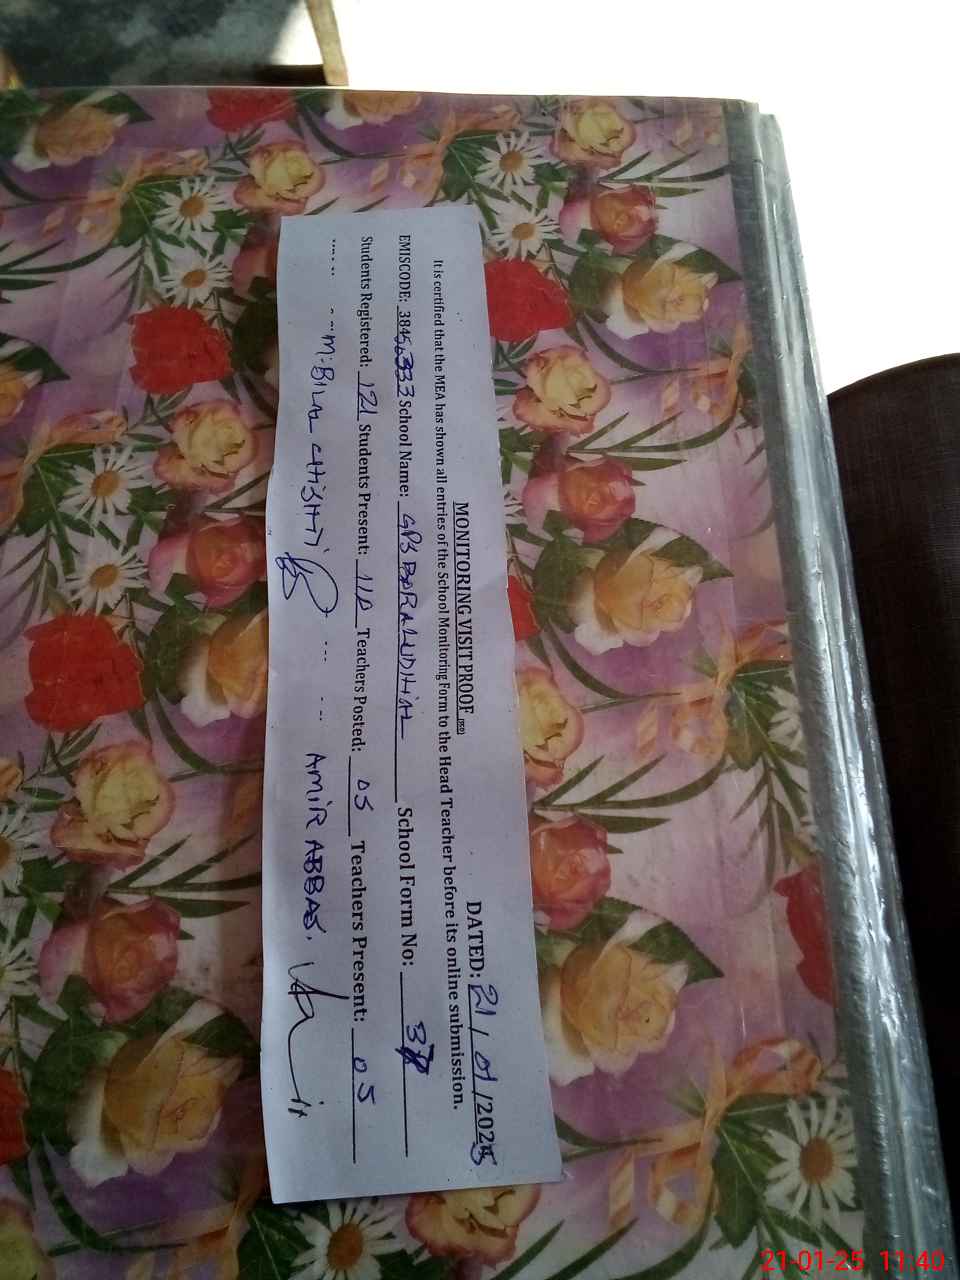 MONITORING VISIT PROOF DATED: 21/01/2025
It is certified that the MEA has shown all entries of the School Monitoring Form to the Head Teacher before its online submission.
EMISCODE: School Name: GPS School Form No:
Students Registered: 121 Students Present: 110 Teachers Posted: 05 Teachers Present: 05
M. BILAL CHISHTI AMIR ABBAS.
21-01-25 11:40